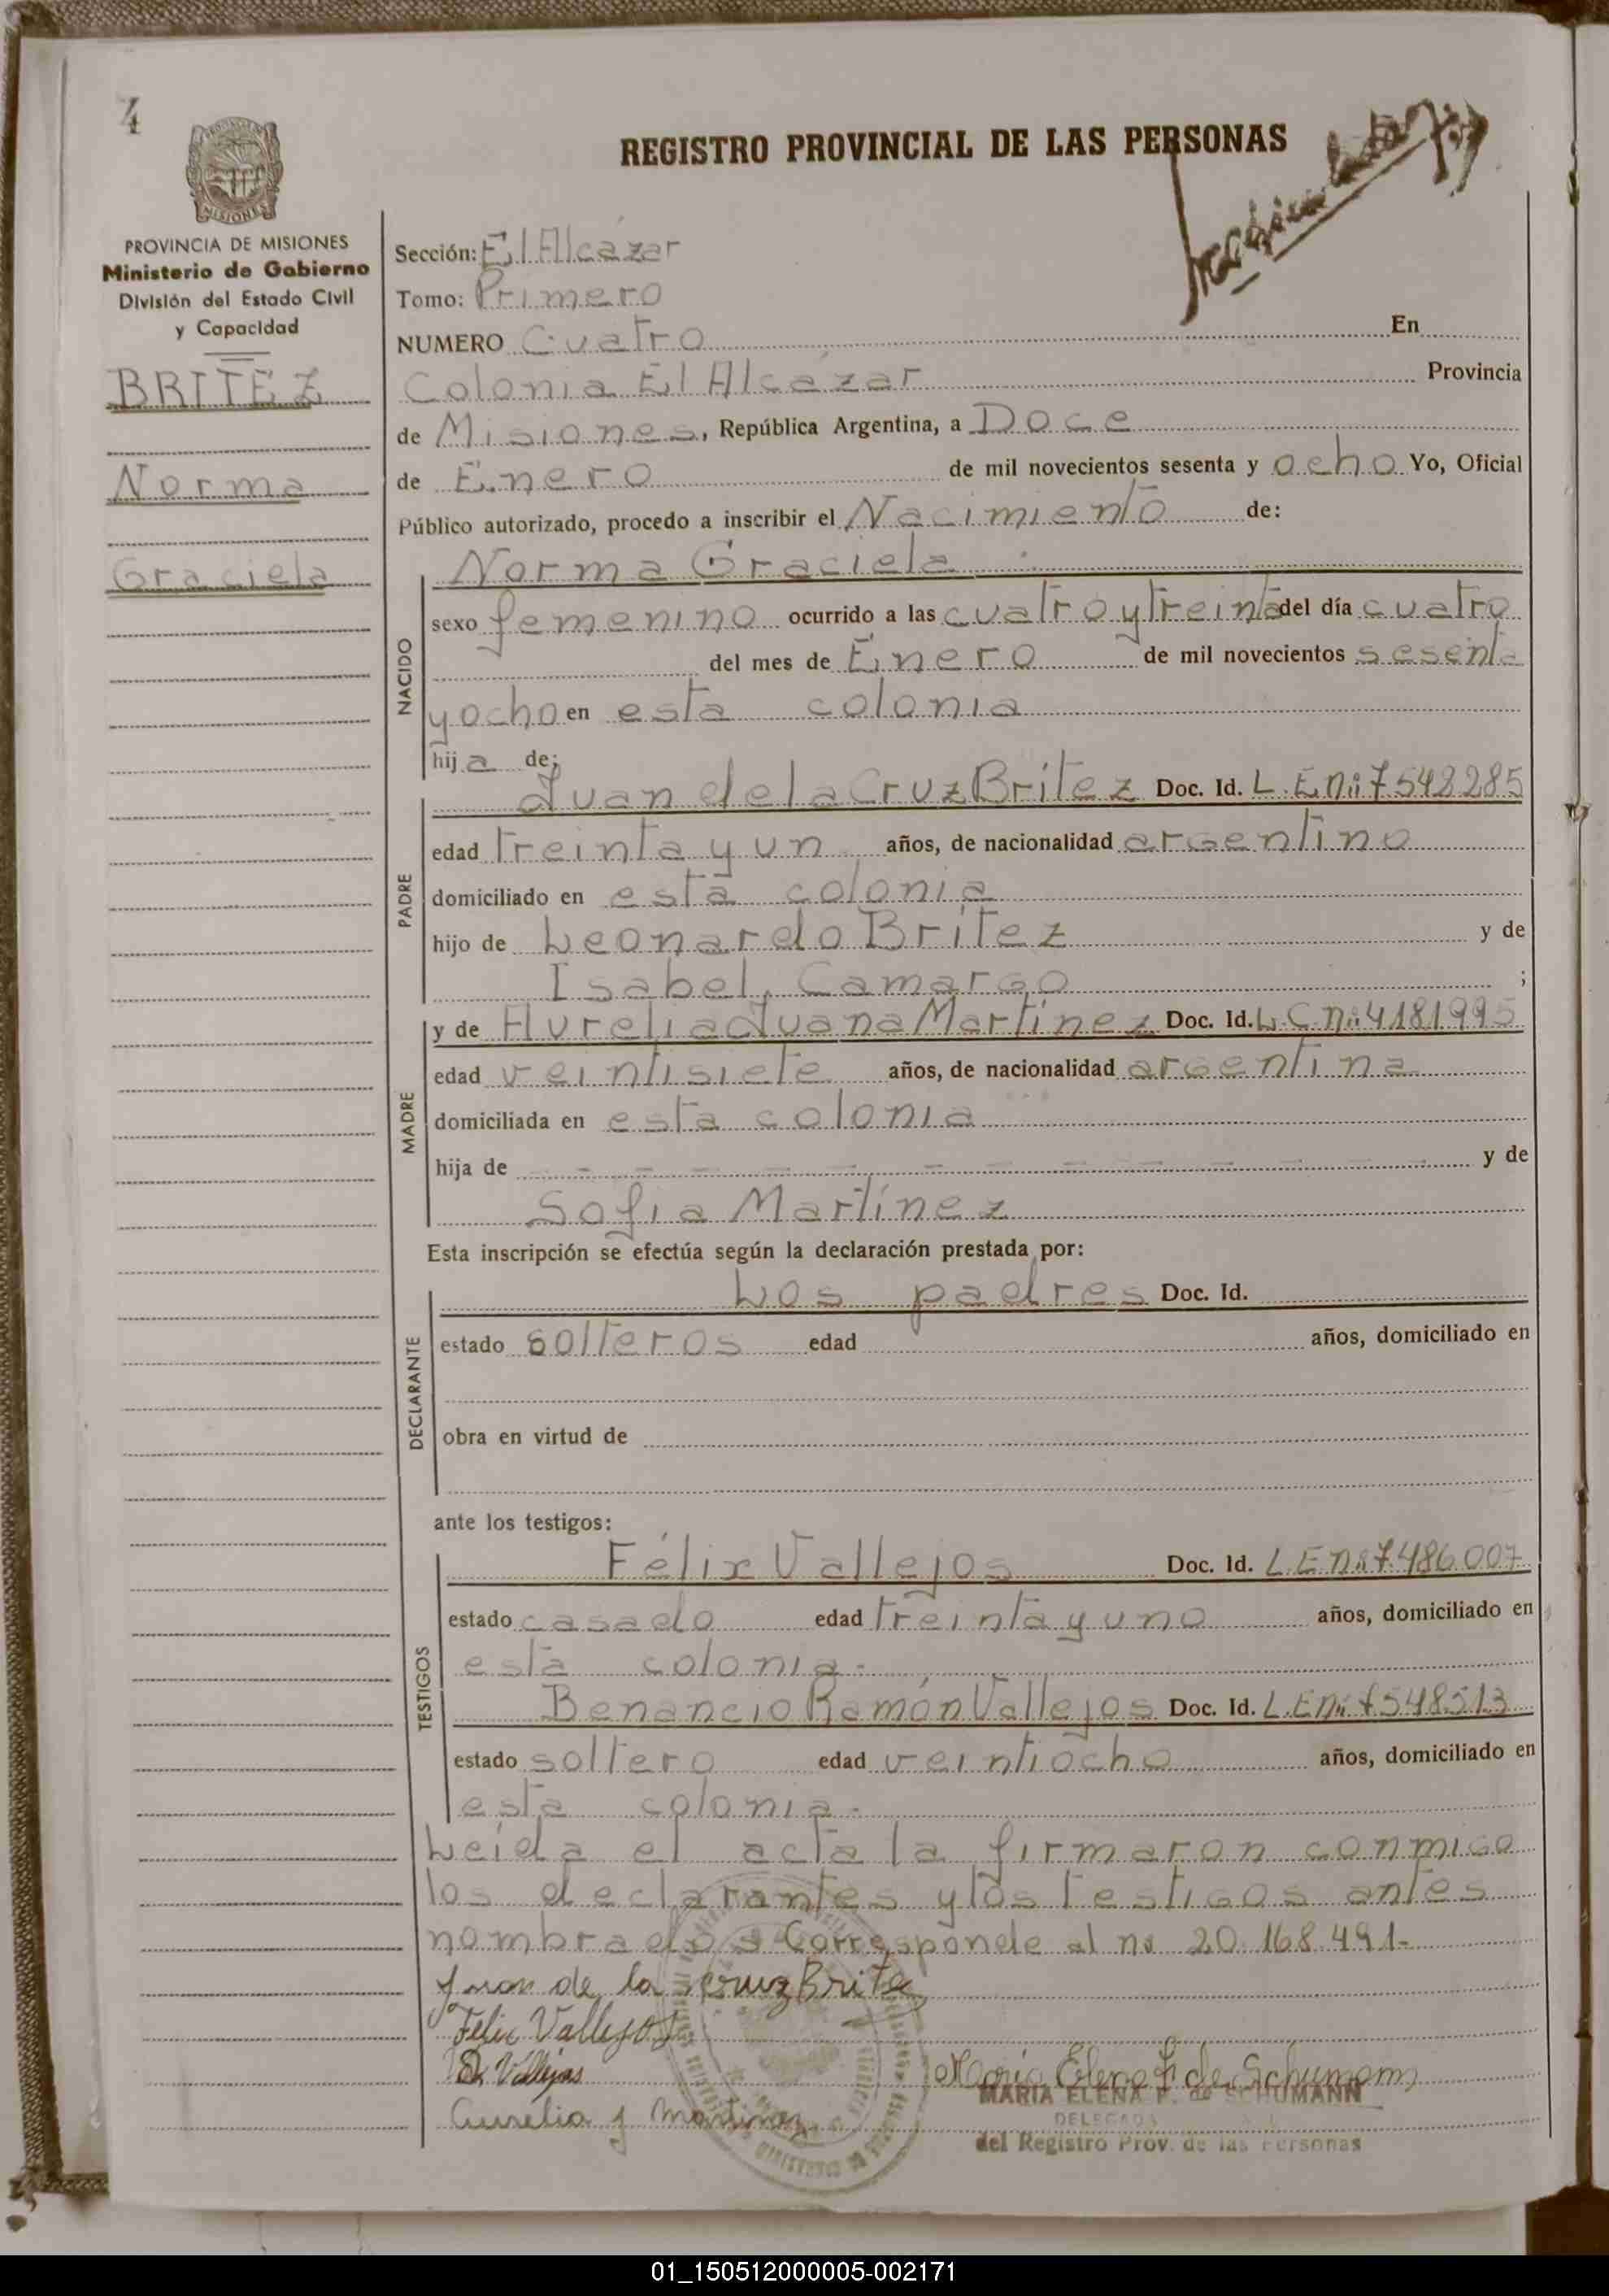 4
REGISTRO PROVINCIAL DE LAS PERSONAS
MISIONES
PROVINCIA DE MISIONES
Ministerio de Gobierno
División del Estado Civil
y Capacidad
BRITEZ
Norma
Graciela
Sección: El Alcázar
Tomo: Primero
NUMERO Cuatro En
Colonia El Alcázar Provincia
de Misiones, República Argentina, a Doce
de Enero de mil novecientos sesenta y ocho Yo, Oficial
Público autorizado, procedo a inscribir el Nacimiento de:
NACIDO
Norma Graciela
sexo femenino ocurrido a las cuatro y treinta del día cuatro
del mes de Enero de mil novecientos sesenta
y ocho en esta colonia
hija de:
PADRE
Juan de la Cruz Britez Doc. Id. L.E.Nº 7548285
edad treinta y un años, de nacionalidad argentino
domiciliado en esta colonia
hijo de Leonardo Britez y de
Isabel Camargo ;
MADRE
y de Aurelia Juana Martínez Doc. Id. L.C.Nº 4181995
edad veintisiete años, de nacionalidad argentina
domiciliada en esta colonia
hija de - - - - - - - - - - y de
Sofia Martínez
Esta inscripción se efectúa según la declaración prestada por:
DECLARANTE
Los padres Doc. Id.
estado solteros edad años, domiciliado en
obra en virtud de
ante los testigos:
TESTIGOS
Félix Vallejos Doc. Id. L.E.Nº 7.486.007
estado casado edad treinta y uno años, domiciliado en
esta colonia.
Benancio Ramón Vallejos Doc. Id. L.E.Nº 7548513
estado soltero edad veintiocho años, domiciliado en
esta colonia.
Leída el acta la firmaron conmigo
los declarantes y los testigos antes
nombrados Corresponde al nº 20.168.491-
Juan de la Cruz Britez
Felix Vallejos
Vallejos
Aurelia J Martinez
Maria Elena F de Schumann
MARIA ELENA F. de SCHUMANN
DELEGADA
del Registro Prov. de las Personas
01_150512000005-002171